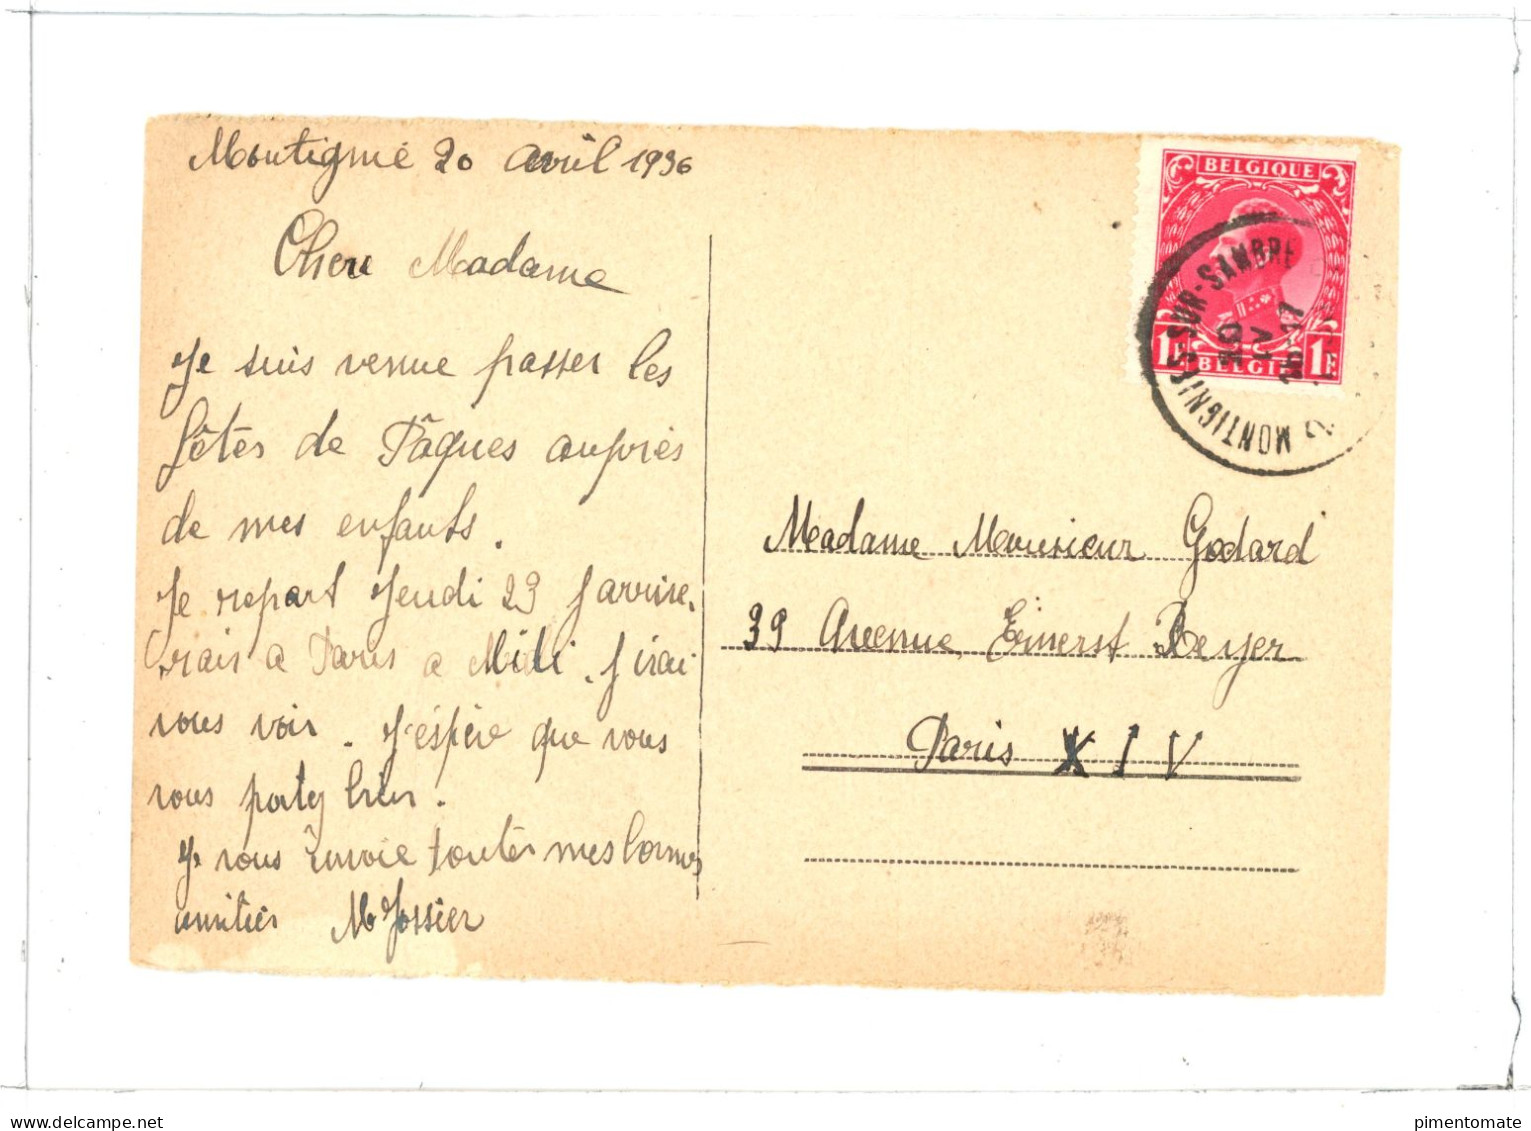 Montignie 20 avril 1936
Chere Madame
Je suis venue passer les
fêtes de Pâques auprès
de mes enfants.
Je repart Jeudi 23 J arrive.
rais a Paris a Midi. J irai
vous voir. J'éspère que vous
vous portez bien.
Je vous envoie toutes mes bonnes
amitiés M Jossier
BELGIQUE
1F BELGIË 1F
MONTIGNIES-SUR-SAMBRE 2
20
IV
16-17
Madame Monsieur Godard
39 Avenue Ernerst Reyer
Paris XIV
pimentomate